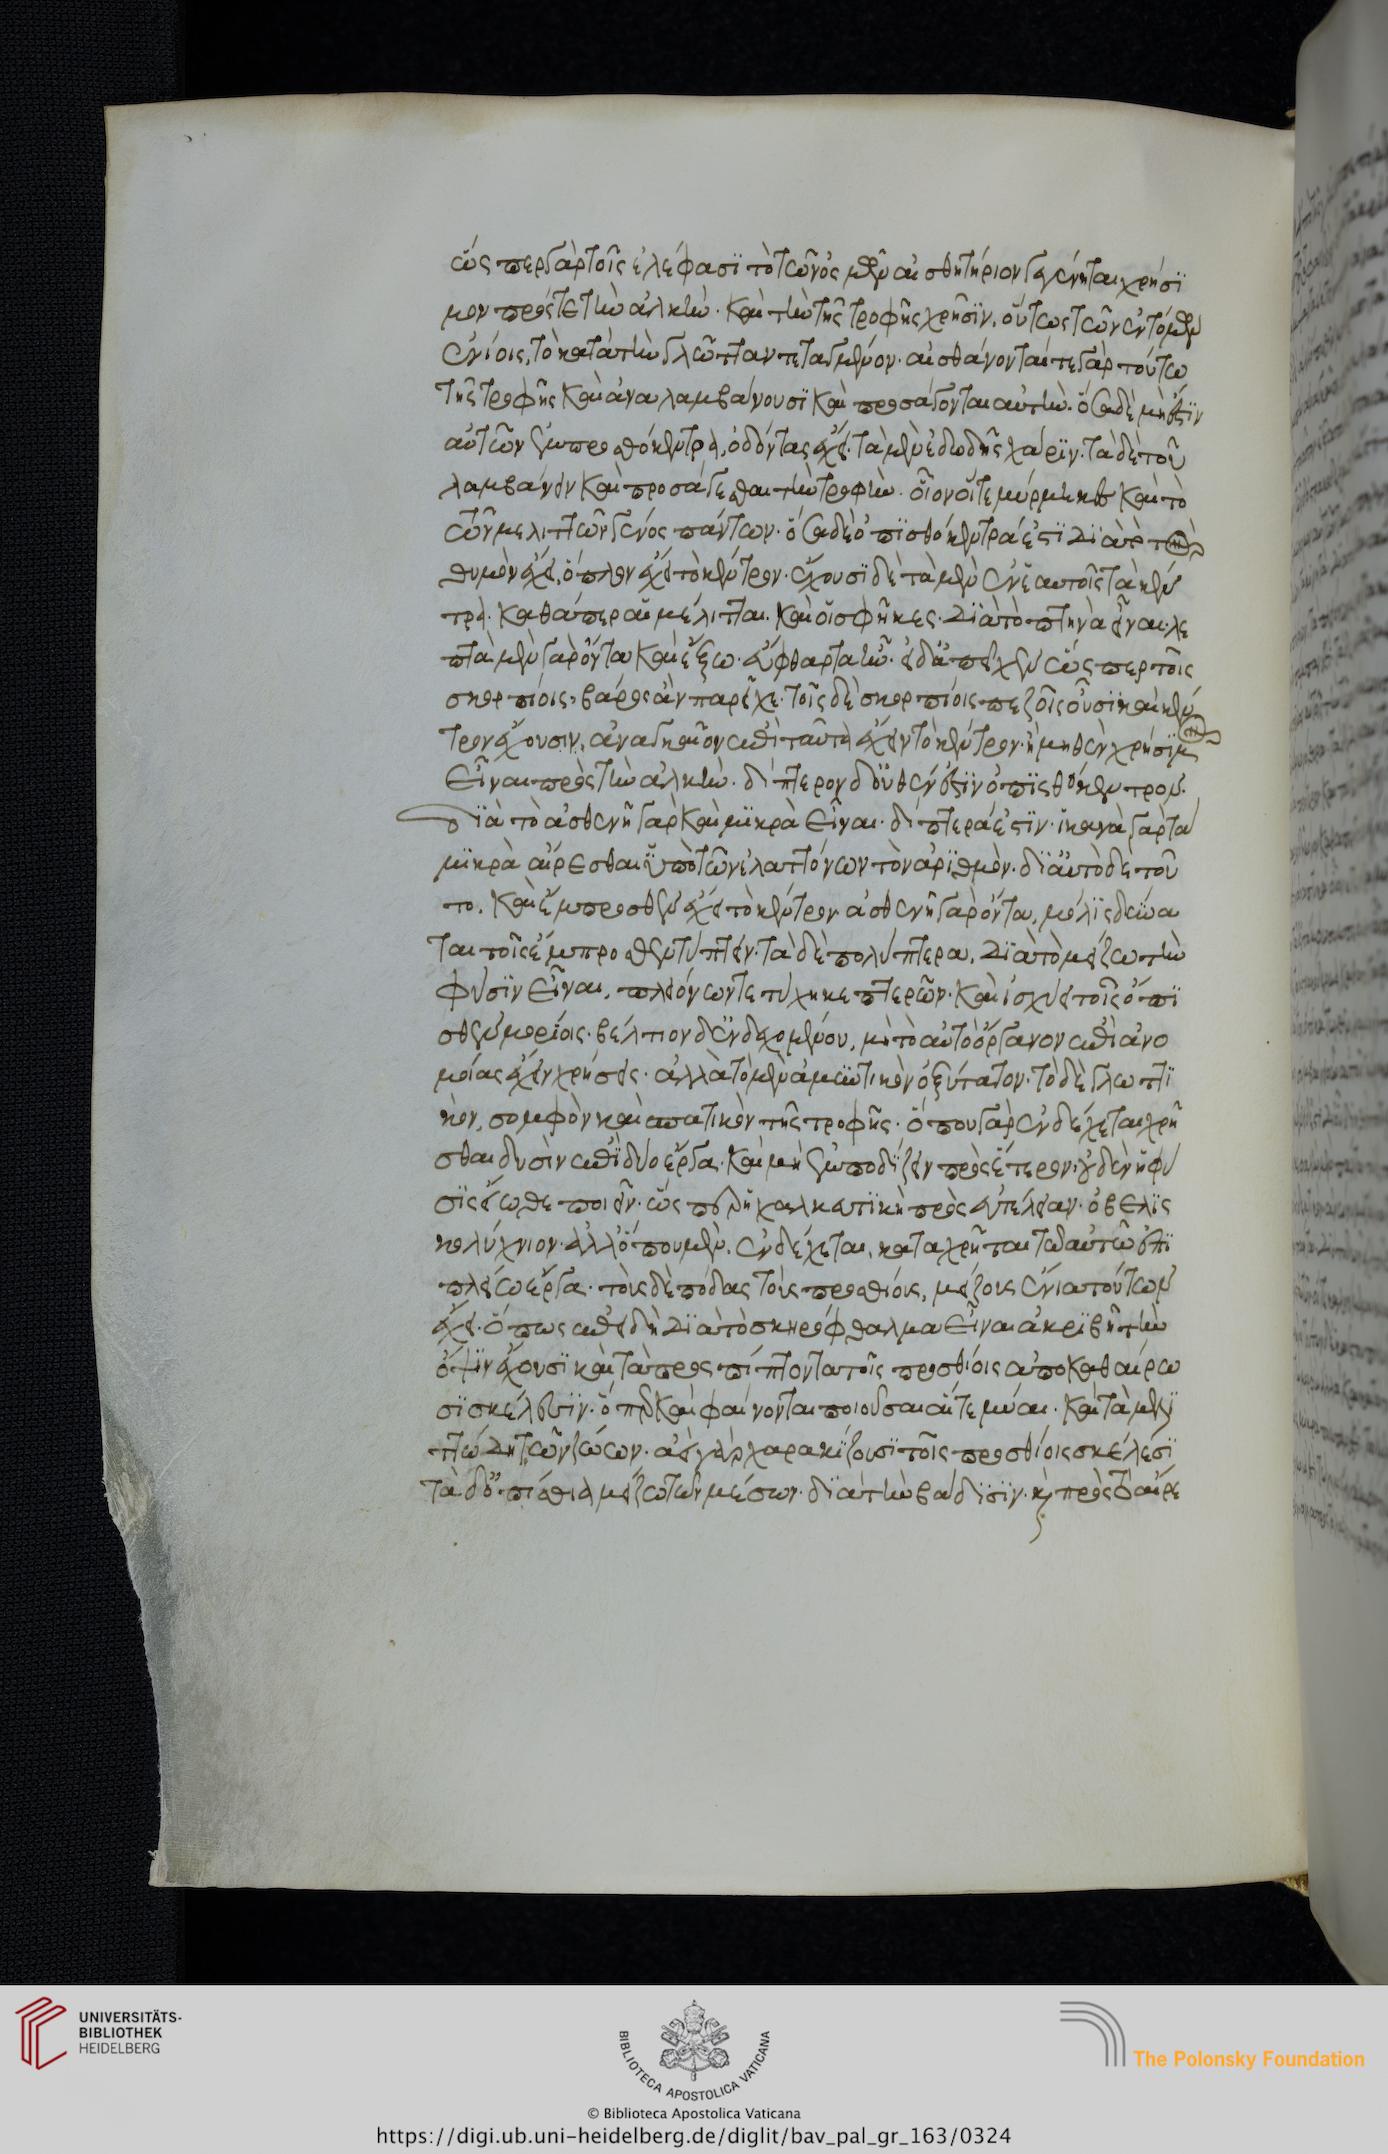 ὥσπερ γὰρ τοῖς ἐλέφασϊ τὸ τῶν ὀσμῶν αἰσθητήριον γεγένηται χρήσϊ
μον πρός τε τὴν ἀλκὴν. καὶ τὴν τῆς τροφῆς χρῆσϊν. οὕτως τῶν ἐντόμων
ἐνίοις, τὸ κατὰ τὴν γλῶτταν τεταγμένον. αἰσθάνονταί τε γὰρ τούτω
τῆς τροφῆς καὶ ἀναλαμβάνουσϊ καὶ προσάγονται αὐτὴν. ὅσα δὲ μή ἐστϊν
αὐτῶν ἐμπροσθόκεντρα, ὀδόντας ἔχει. τὰ μὲν ἐδωδῆς χάρϊν. τὰ δὲ τοῦ
λαμβάνειν καὶ προσάγεσθαι τὴν τροφὴν. οἷον οἵ τε μύρμηκες καὶ τὸ
τῶν μελιττῶν γένος πάντων. ὅσα δὲ ὀπϊσθόκεντρά ἐστϊ διὰ τὸ
θυμὸν ἔχειν, ὅπλον ἔχει τὸ κέντρον. ἔχουσϊ δὲ τὰ μὲν ἐν ἑαυτοῖς τὰ κέν
τρα. καθάπερ αἱ μέλιτται. καὶ οἱ σφῆκες. διὰ τὸ πτηνὰ εἶναι. λε
πτὰ μὲν γὰρ ὄντα καὶ ἔξω. εὔφθαρτα ἦν. εἰ δὲ ἀπεῖχεν ὥσπερ τοῖς
σκορπίοις, βάρος ἂν παρεῖχε. τοῖς δὲ σκορπίοις πεζοῖς οὖσϊ καὶ κέν
τρον ἔχουσιν, ἀναγκαῖον ἐπὶ ταύτη ἔχειν τὸ κέντρον. ἢ μηθὲν χρήσϊμον
εἶναι πρὸς τὴν ἀλκὴν. δίπτερον δ' οὐθέν ἐστϊν ὀπϊσθόκεντρον.
Διὰ τὸ ἀσθενῆ γὰρ καὶ μϊκρὰ εἶναι. δίπτερά ἐστϊν. ἱκανὰ γὰρ τὰ
μϊκρὰ αἴρεσθαι ὑπὸ τῶν ἐλαττόνων τὸν ἀρϊθμὸν. δϊ' αὐτὸ δὲ τοῦ
το. καὶ ἔμπροσθεν ἔχει τὸ κέντρον. ἀσθενῆ γὰρ ὄντα, μόλϊς δύνα
ται τοῖς ἔμπροσθεν τύπτειν. τὰ δὲ πολύπτερα, διὰ τὸ μείζω τὴν
φύσϊν εἶναι, πλειόνων τετύχηκε πτερῶν. καὶ ἰσχύει τοῖς ὄπϊ
σθεν μορίοις. βέλτιον δ' ἐνδεχομένου, μὴ τὸ αὐτὸ ὄργανον ἐπὶ ἀνο
μοίας ἔχειν χρήσεις. ἀλλὰ τὸ μὲν ἀμυντικὸν ὀξύτατον. τὸ δὲ γλωττϊ
κὸν, σομφὸν καὶ σπατικὸν τῆς τροφῆς. ὅπου γὰρ ἐνδέχεται χρῆ
σθαι δυσὶν ἐπὶ δύο ἔργα. καὶ μὴ ἐμποδίζειν πρὸς ἕτερον. οὐδὲν ἡ φύ
σϊς εἴωθε ποιεῖν. ὥσπερ ἡ χαλκευτϊκὴ πρὸς εὐτέλειαν. ὀβελϊς
κολύχνιον. ἀλλ' ὅπου μὴ. ἐνδέχεται, καταχρῆται τῷ αὐτῷ ἐπὶ
πλείω ἔργα. τοὺς δὲ πόδας τοὺς προσθίους, μείζους ἔνια τούτων
ἔχει. ὅπως ἐπειδὴ διὰ τὸ σκληρόφθαλμα εἶναι ἀκρϊβῆ τὴν
ὄψϊν ἔχουσϊ καὶ τὰ προσπίπτοντα τοῖς προσθίοις ἀποκαθαίρω
σϊ σκέλεσϊν. ὅπερ καὶ φαίνονται ποιοῦσαι αἵ τε μύιαι. καὶ τὰ μελϊ
ττώδη τῶν ζώων. ἀεὶ γὰρ χαρακίζουσϊ τοῖς προσθίοις σκέλεσϊ
τὰ δ' ὀπίσθια μείζω τῶν μέσων. διὰ τὴν βάδϊσϊν. καὶ πρὸς τὸ αἴρε
UNIVERSITÄTS-
BIBLIOTHEK
HEIDELBERG
BIBLIOTECA APOSTOLICA VATICANA
The Polonsky Foundation
© Biblioteca Apostolica Vaticana
https://digi.ub.uni-heidelberg.de/diglit/bav_pal_gr_163/0324